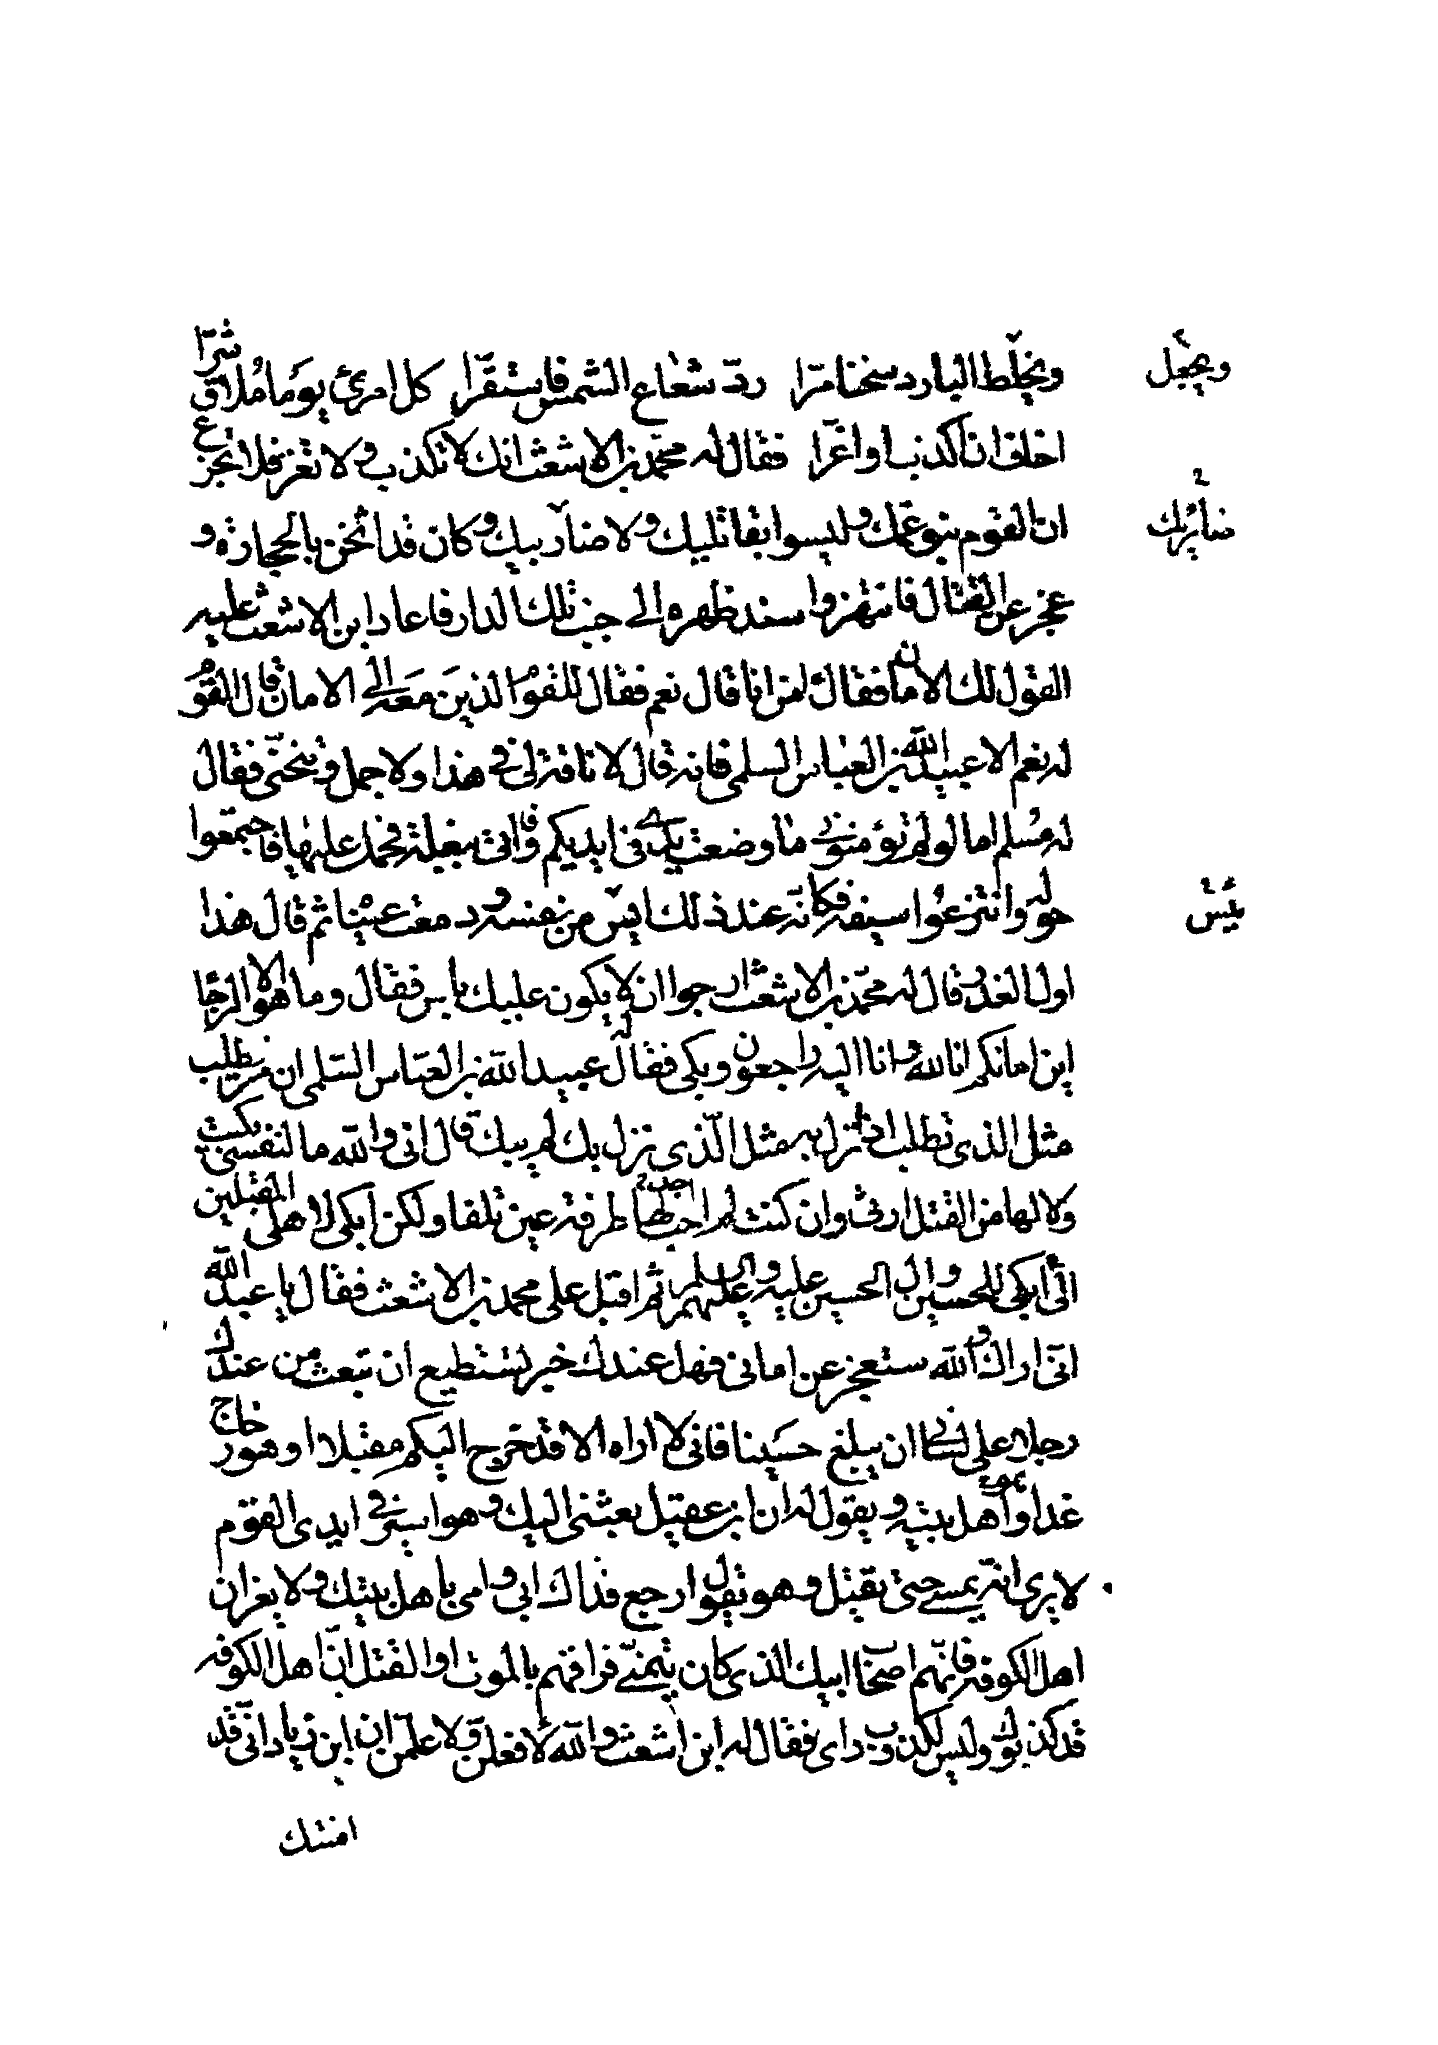 ويخلط البارد سخنا مرّا ردّ شعاع الشمس فاستقرّا كل امرئ يوما ملاق شرّا
ويجعل
اخاف ان اكذب او اغرّا فقال له محمد بن الاشعث انك لا تكذب ولا تغر فلا تجزع
ان القوم بنو عمك وليسوا بقاتليك ولا ضاربيك وكان قد اثخن بالحجارة و
ضائريك
عجز عن القتال فانتهز واسند ظهره الى جنب تلك الدار فاعاد ابن الاشعث عليه
القول لك الامان فقال امن انا قال نعم فقال للقوم الذين معه الى الامان قال القوم
له نعم الا عبيد الله بن العباس السلمى فانه قال لا ناقة لى فى هذا ولا جمل وتنحّى فقال
له مسلم اما لو لم تؤمنونى ما وضعت يدى فى ايديكم واتى ببغلة فحمل عليها فاجتمعوا
حوله وانتزعوا سيفه فكانّه عند ذلك ايس من نفسه ودمعت عيناه ثم قال هذا
يئس
اول الغدر قال له محمد بن الاشعث ارجوا ان لا يكون عليك باس فقال وما هو الا الرجا
اين امانكم انا لله وانا اليه راجعون وبكى فقال له عبيد الله بن العباس السلمى ان من يطلب
مثل الذى تطلب اذا نزل به مثل الّذى نزل بك لم يبك قال انى والله ما لنفسى بكيت
ولا لها من القتل ارثى وان كنت لم احب لها طرفة عين تلفا ولكن ابكى لاهلى المقبلين
الىّ ابكى للحسين وال الحسين عليه وعليهم السلم ثم اقبل على محمد بن الاشعث فقال يا عبد الله
انّى اراك والله ستعجز عن امانى فهل عندك خير تستطيع ان تبعث من عندك
رجلا على لسانى ان يبلغ حسينا فانى لا اراه الا قد خرج اليكم مقبلا او هو خارج
غدا واهل بيته ويقول له ان ابن عقيل بعثنى اليك وهو اسير فى ايدى القوم
لا يرى انه يمسى حتى يقتل وهو يقول ارجع فداك ابى وامى باهل بيتك ولا يغرّك
اهل الكوفه فانّهم اصحاب ابيك الذى كان يتمنّى فراقهم بالموت او القتل انّ اهل الكوفه
قد كذبوك وليس لكذوب راى فقال له ابن اشعث والله لافعلن ولا علمن ان ابن زياد انّى قد
امنتك